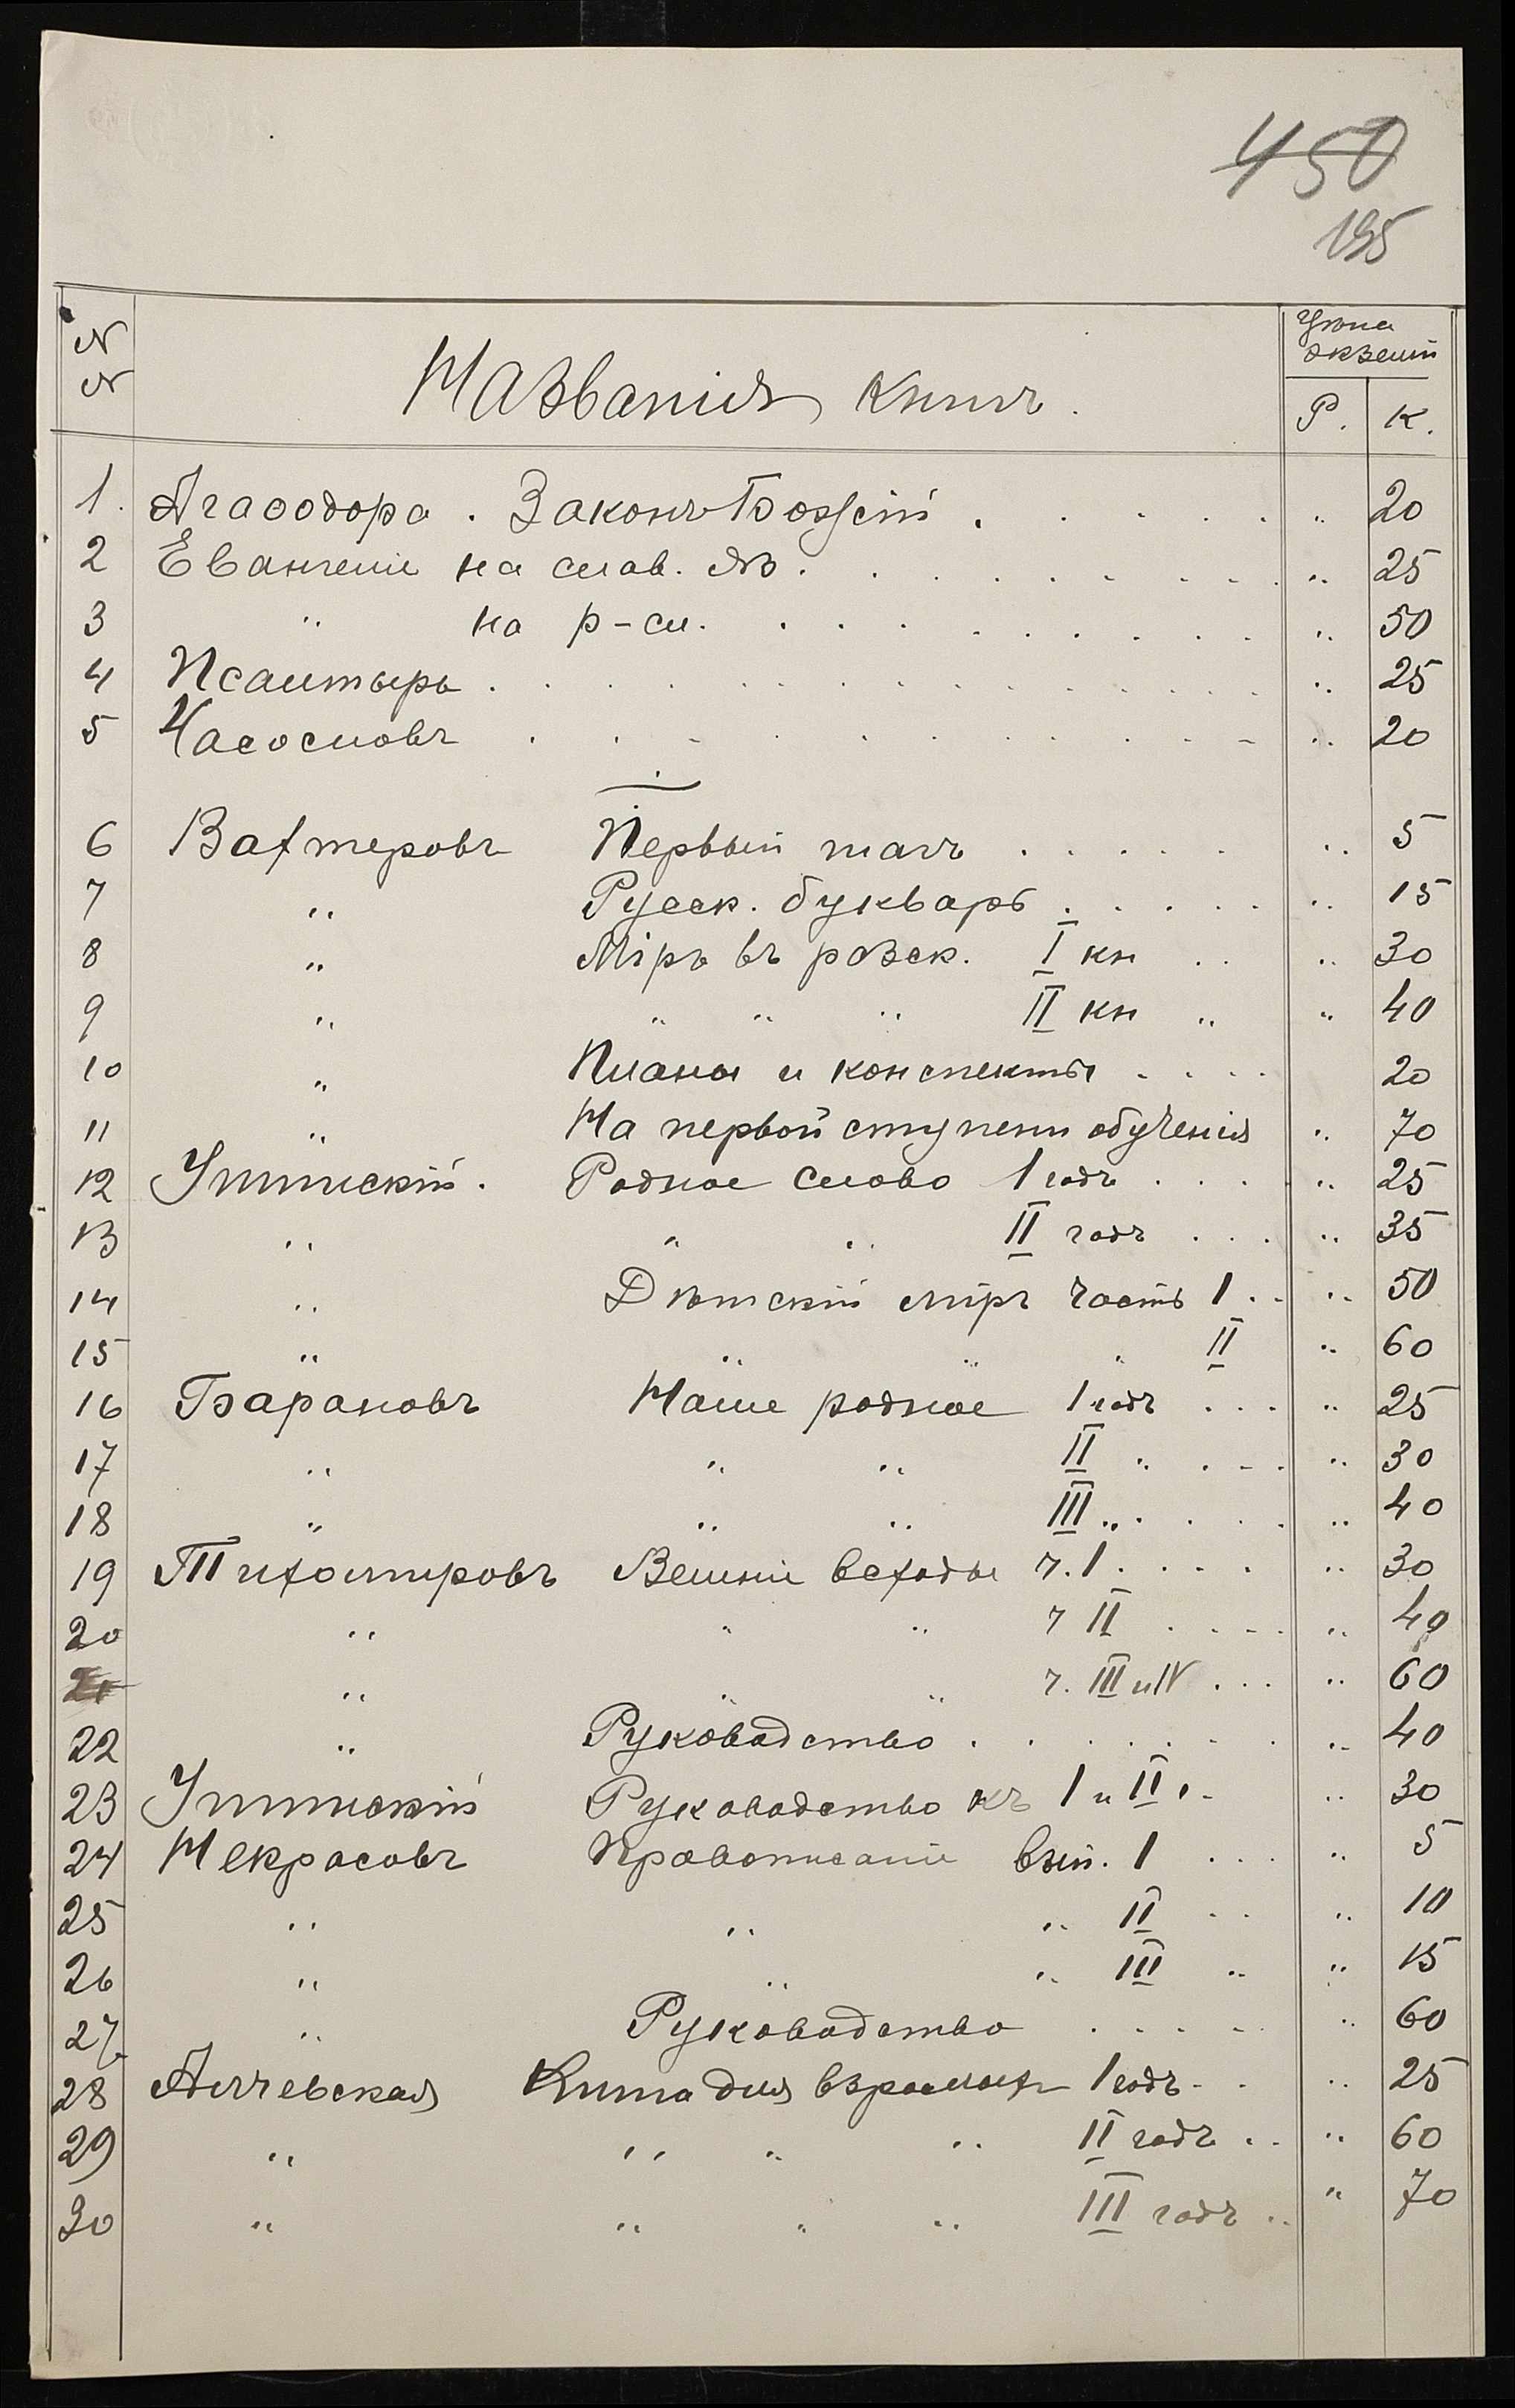 450
195
N
N
Названія книгъ.
Цѣна
экземп
Р. К.
1. Агаѳодора. Законъ Божій . . . . . . „ 20
2 Евангеліе на слав. яз. . . . . . . . „ 25
3 „ на р-сл. . . . . . . . . „ 50
4 Псалтырь . . . . . . . . . . „ 25
5 Часословъ . . . . . . . . . . „ 20
6 Вахтеровъ Первый шагъ . . . . . „ 5
7 „ Русск. букварь . . . . . „ 15
8 „ Міръ въ разск. I кн . . „ 30
9 „ „ „ „ II кн „ „ 40
10 „ Планы и конспекты . . . . 20
11 „ На первой ступени обученія „ 70
12 Ушинскій. Родное слово 1 годъ . . . . „ 25
13 „ „ „ II годъ . . . „ 35
14 „ Дѣтскій міръ часть 1 . . „ 50
15 „ „ „ „ II „ 60
16 Барановъ Наше родное 1 годъ . . . „ 25
17 „ „ „ II „ . . . . „ 30
18 „ „ „ III „ . . . . . „ 40
19 Тихомировъ Вешніе всходы ч. 1 . . . . „ 30
20 „ „ „ ч II . . . . . „ 40
21 „ „ „ ч. III и IV . . . „ 60
22 „ Руководство . . . . . . „ 40
23 Ушинскій Руководство къ 1 и II г. „ 30
24 Некрасовъ Правописаніе вып. 1 . . . „ 5
25 „ „ „ II . . „ 10
26 „ „ „ III „ „ 15
27 „ Руководство . . . . . „ 60
28 Алчевская Книга для взрослых 1 годъ . . „ 25
29 „ „ „ „ II годъ . . „ 60
30 „ „ „ „ III годъ . . „ 70